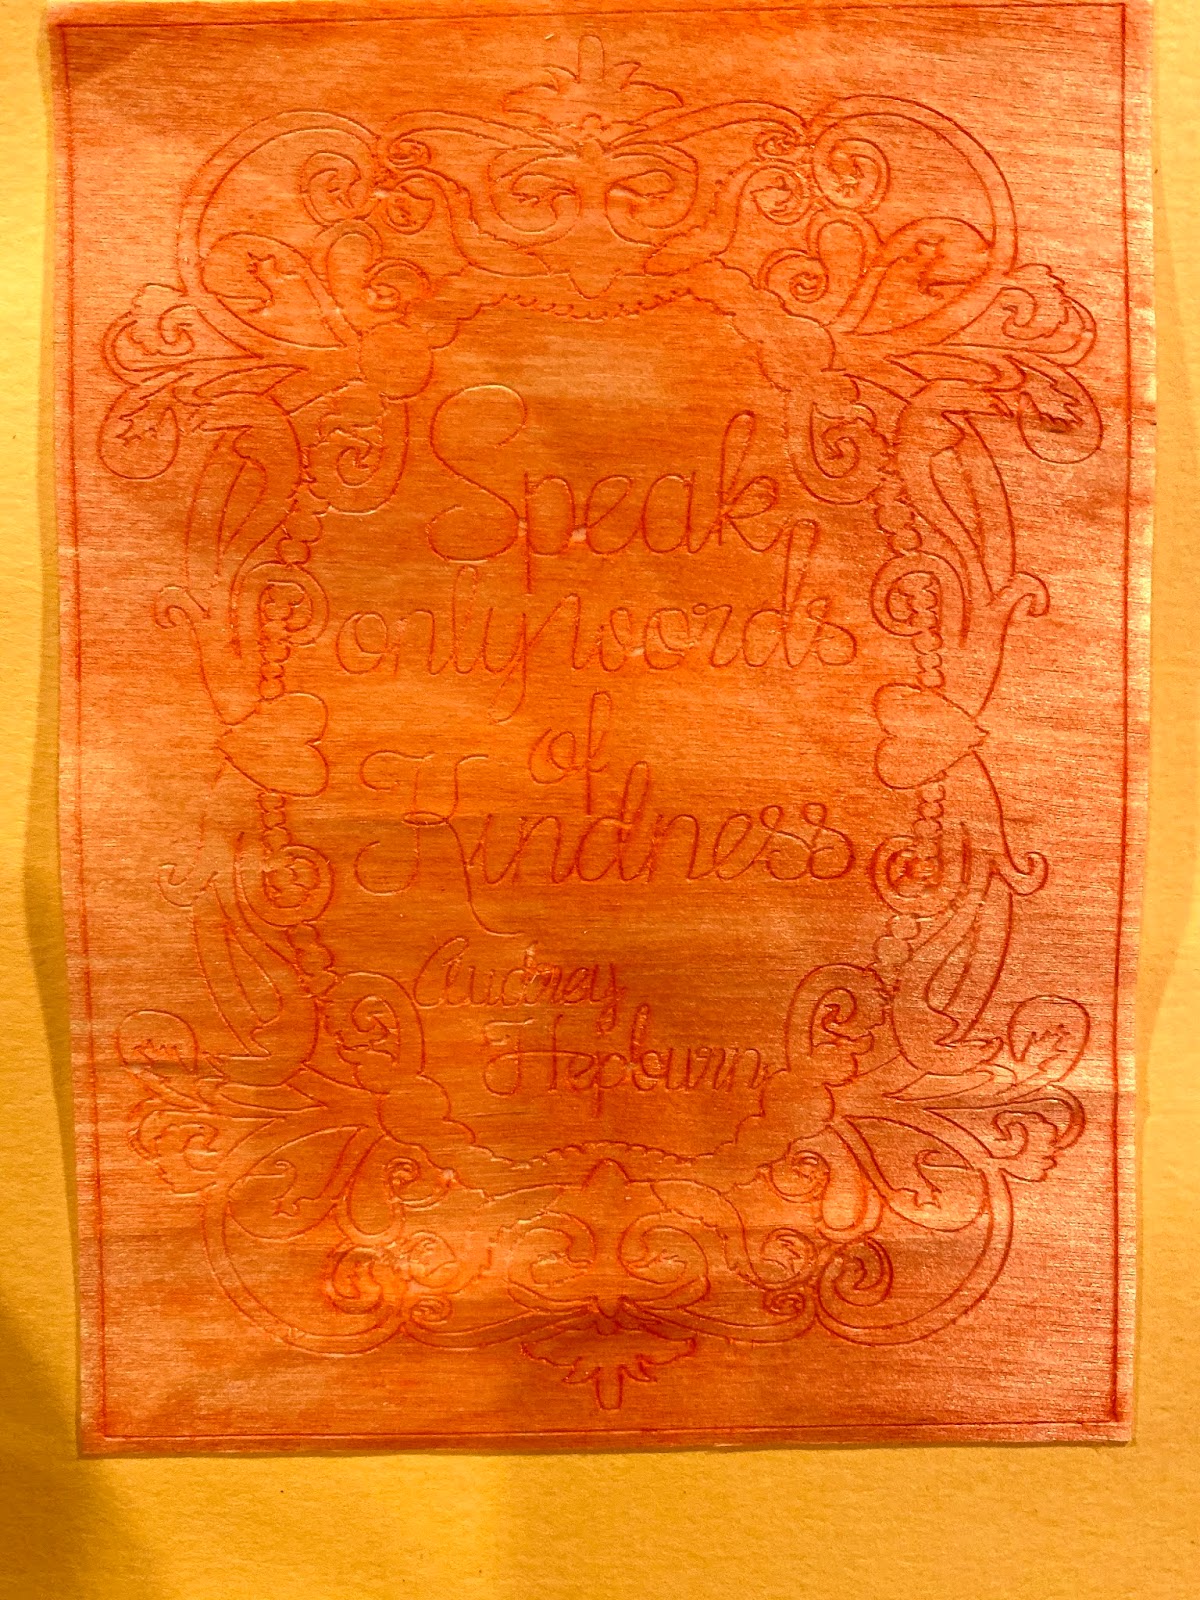 Speak
only words
of
Kindness
Audrey
Hepburn